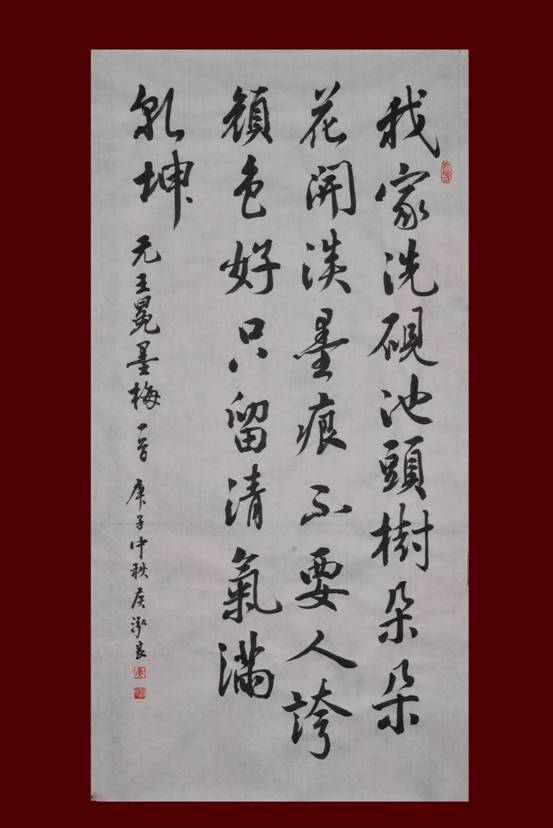 我家洗硯池頭樹朵朵
花開淡墨痕不要人誇
顏色好只留清氣滿
乾坤 元王冕墨梅一首 庚子中秋侯泓良